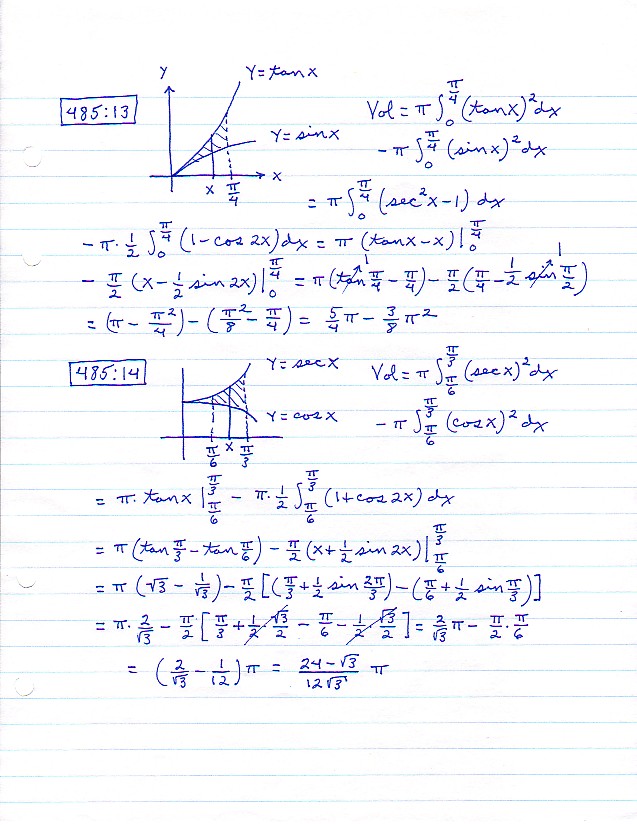 485:13
Y
Y=tanx
Y=sinx
x
x π/4
Vol = π ∫₀^(π/4) (tanx)² dx
- π ∫₀^(π/4) (sinx)² dx
= π ∫₀^(π/4) (sec²x-1) dx
- π · 1/2 ∫₀^(π/4) (1-cos 2x) dx = π (tanx-x) |₀^(π/4)
- π/2 (x - 1/2 sin 2x) |₀^(π/4) = π (tan π/4 - π/4) - π/2 (π/4 - 1/2 sin π/2)
1 1
= (π - π²/4) - (π²/8 - π/4) = 5/4 π - 3/8 π²
485:14
Y=secx
Y=cosx
π/6 x π/3
Vol = π ∫_(π/6)^(π/3) (secx)² dx
- π ∫_(π/6)^(π/3) (cosx)² dx
= π · tanx |_(π/6)^(π/3) - π · 1/2 ∫_(π/6)^(π/3) (1+cos 2x) dx
= π (tan π/3 - tan π/6) - π/2 (x + 1/2 sin 2x) |_(π/6)^(π/3)
= π (√3 - 1/√3) - π/2 [(π/3 + 1/2 sin 2π/3) - (π/6 + 1/2 sin π/3)]
= π · 2/√3 - π/2 [π/3 + 1/2 √3/2 - π/6 - 1/2 √3/2] = 2/√3 π - π/2 · π/6
= (2/√3 - 1/12) π = (24-√3)/(12√3) π